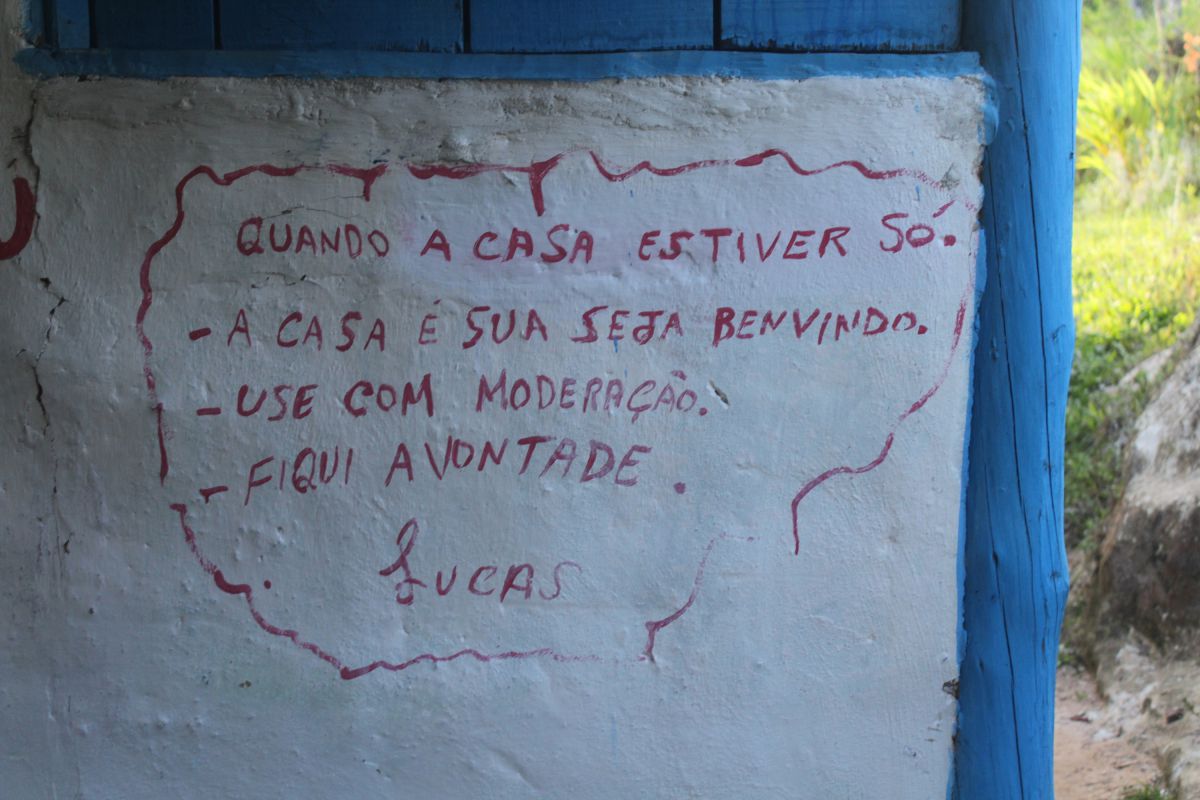 QUANDO A CASA ESTIVER SÓ.
- A CASA É SUA SEJA BENVINDO.
- USE COM MODERAÇÃO.
- FIQUI AVONTADE.
LUCAS